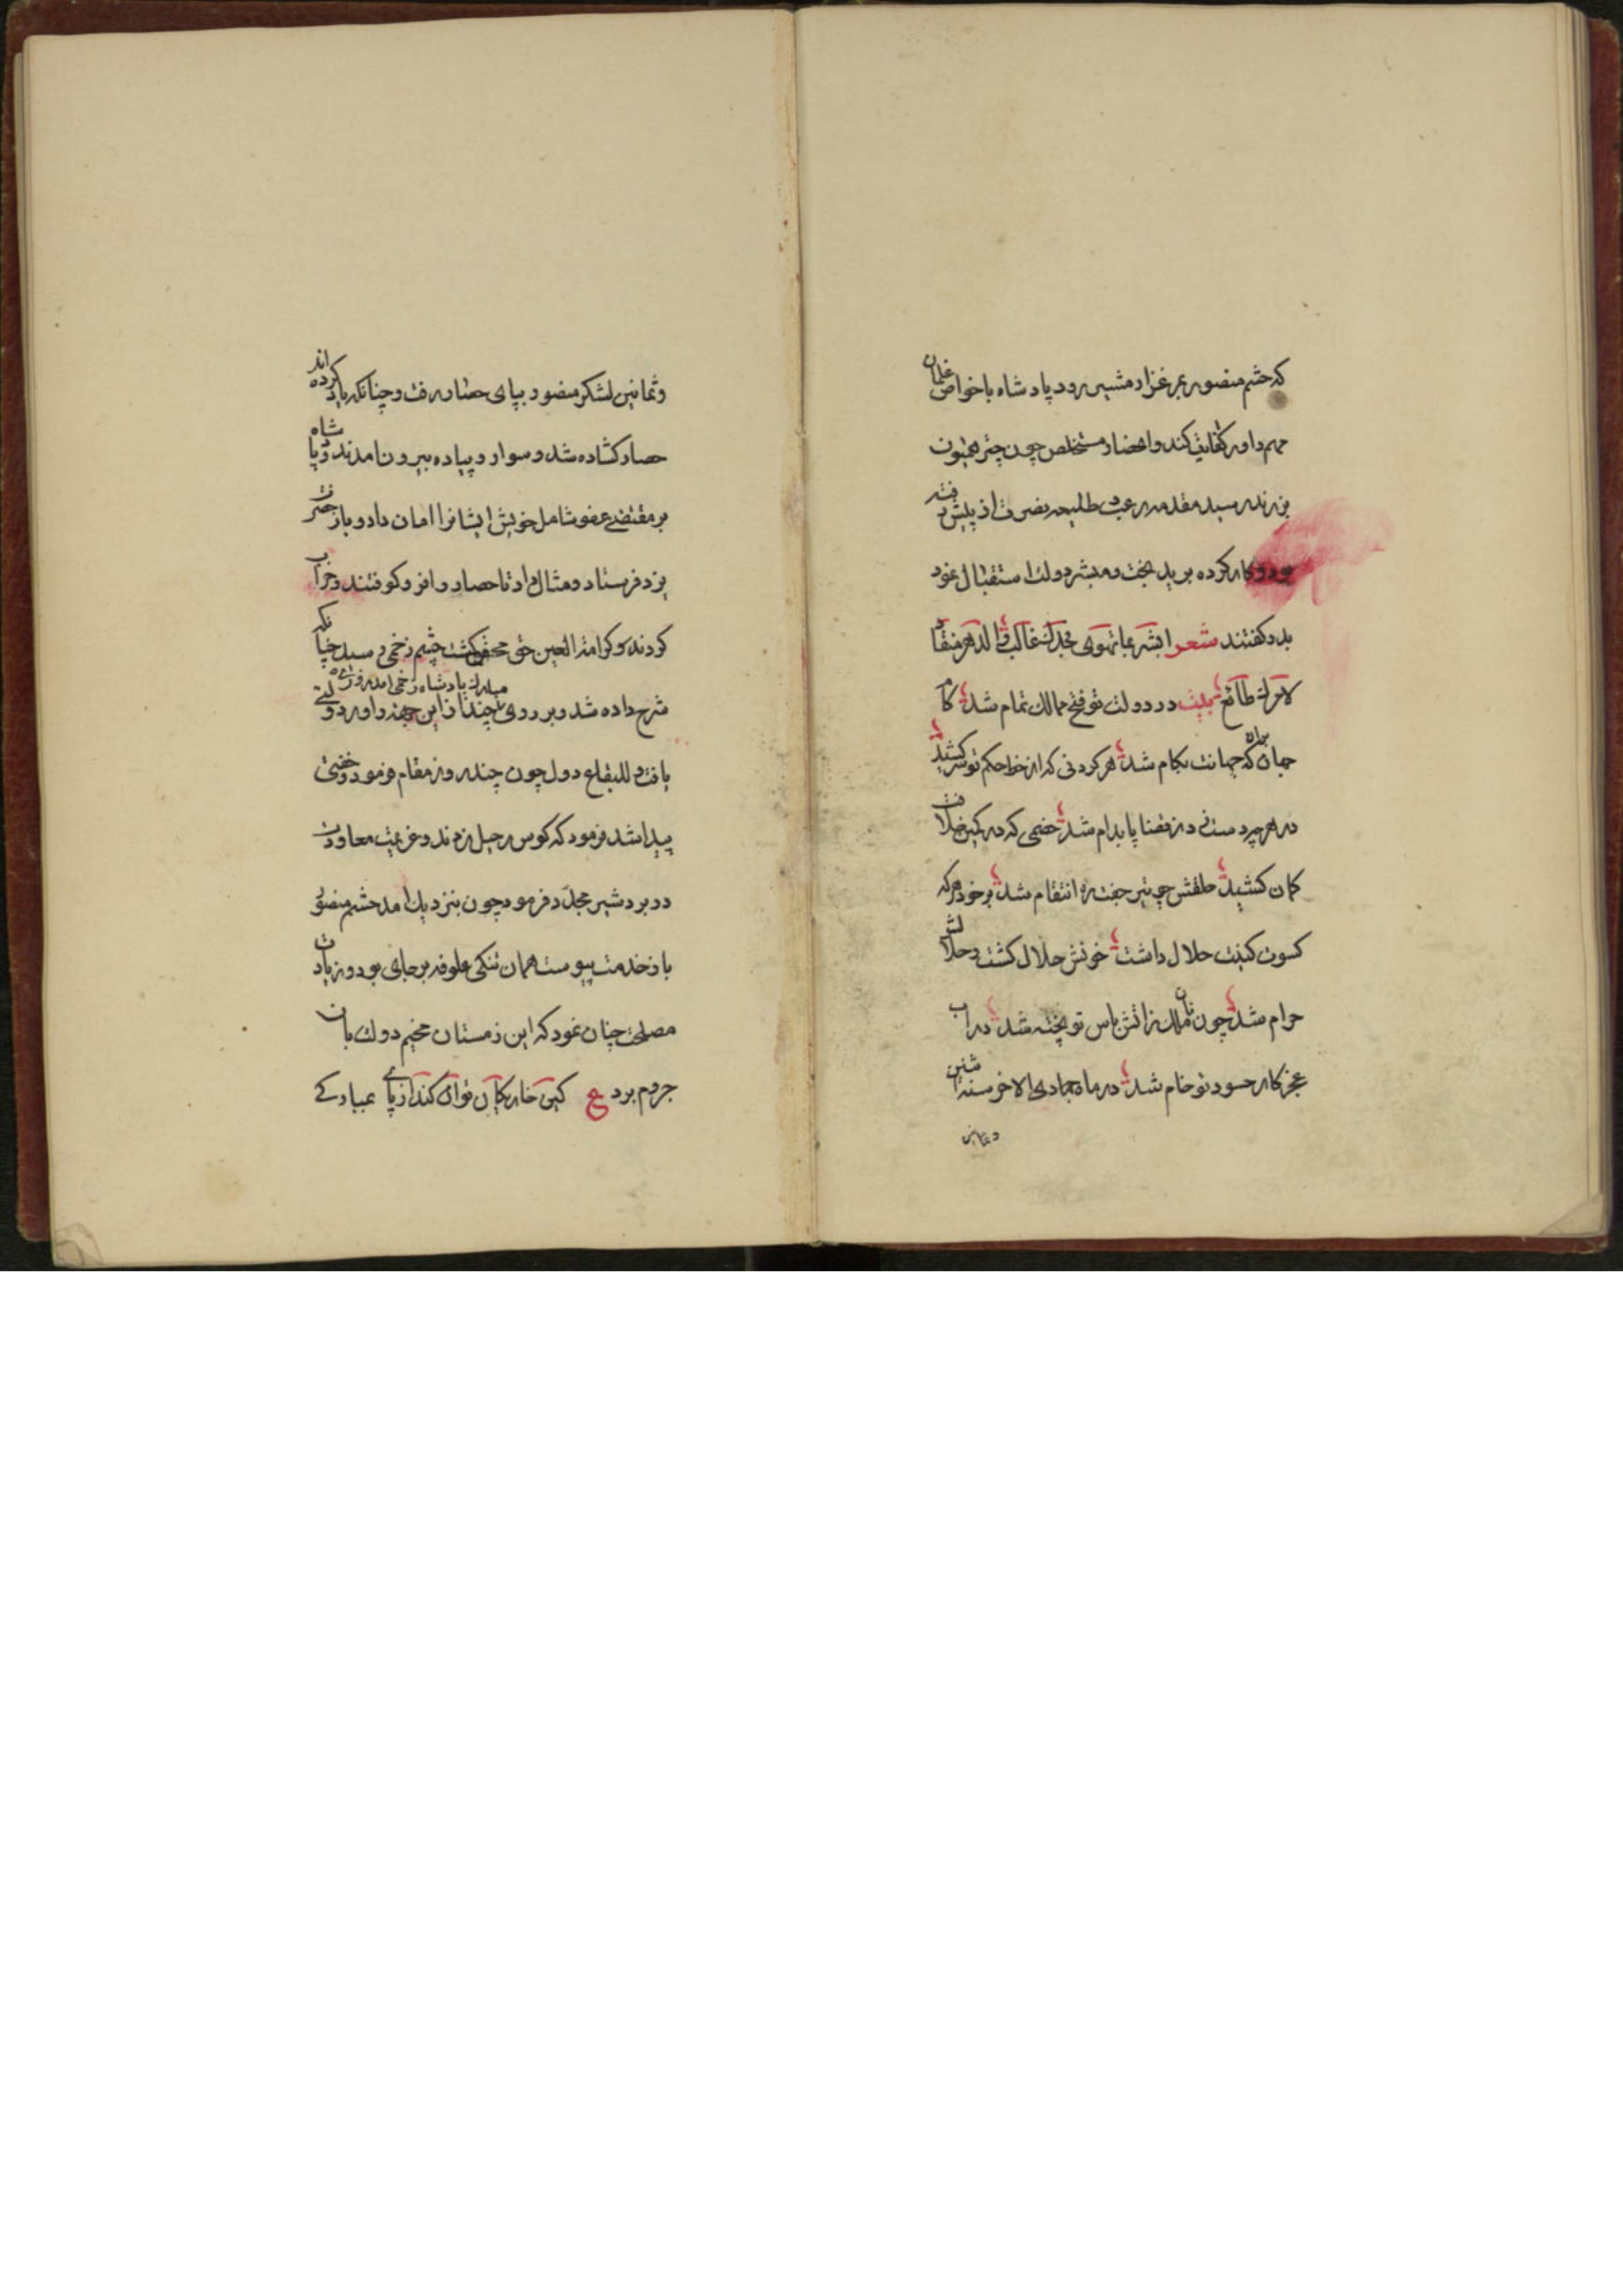 که حشم منصور بمرغزار مشیز رود پادشاه با خواص غلمان
مهم داور کفایت کند و احضار مستخلص چون چتر همیون
بزرند رسید مقدمه رعب طلیعه نصرت از پیش رفته
بود و کار کرده برید بخت و مبشر دولت استقبال نمود
بدو گفتند شعر ابشر بما تهوی فجدک غالب و الدهر منقاد
لامرک طائع بیت در دولت تو فتح ممالک تمام شد کام
جهان بران که جهانت بکام شد هر گردنی که از خط حکم تو سر کشید
در هر چه دست زد ز قضا پا بدام شد خصمی که در کمین خلافت
کمان کشید حلقش چو تیر جفته انتقام شد بر خود هر که
کسوت کینت حلال داشت خونش حلال گشت و حلالش
حرام شد چون نان ملک ز آتش باس تو پخته شد در آب
عجز کار حسود تو خام شد در ماه جمادی الاخر سنه اثنین
و ثمانین
و ثمانین لشکر منصور بپای حصار رفت و چنانکه یاد کرده اند
حصار گشاده شد و سوار و پیاده بیرون آمدند و پادشاه
بر مقتضی عفو شامل خویش ایشانرا امان داد و باز حضرت
یزد فرستاد و مثال داد تا حصار را فرو کوفتند و خراب
کردند و کرامة العین حق محقق گشت چشم زخمی رسید چنانکه
شرح داده شد و بر روی مبارک پادشاه زخمی آمد
یافت و للبقاع دول چون چند روز مقام فرمود و خفتی
پیدا شد فرمود که کوس رحیل زدند و عزیمت معاودت
در بردشیر مجدد فرمود چون بنزدیک آمد حشم منصور
باز خدمت پیوست همان تنگی علوفه بر جای بود و زیادت
مصلحت چنان نمود که این زمستان مخیم دولت بان
جروم برد ع کین خار کان توان کند از پای عبادکی